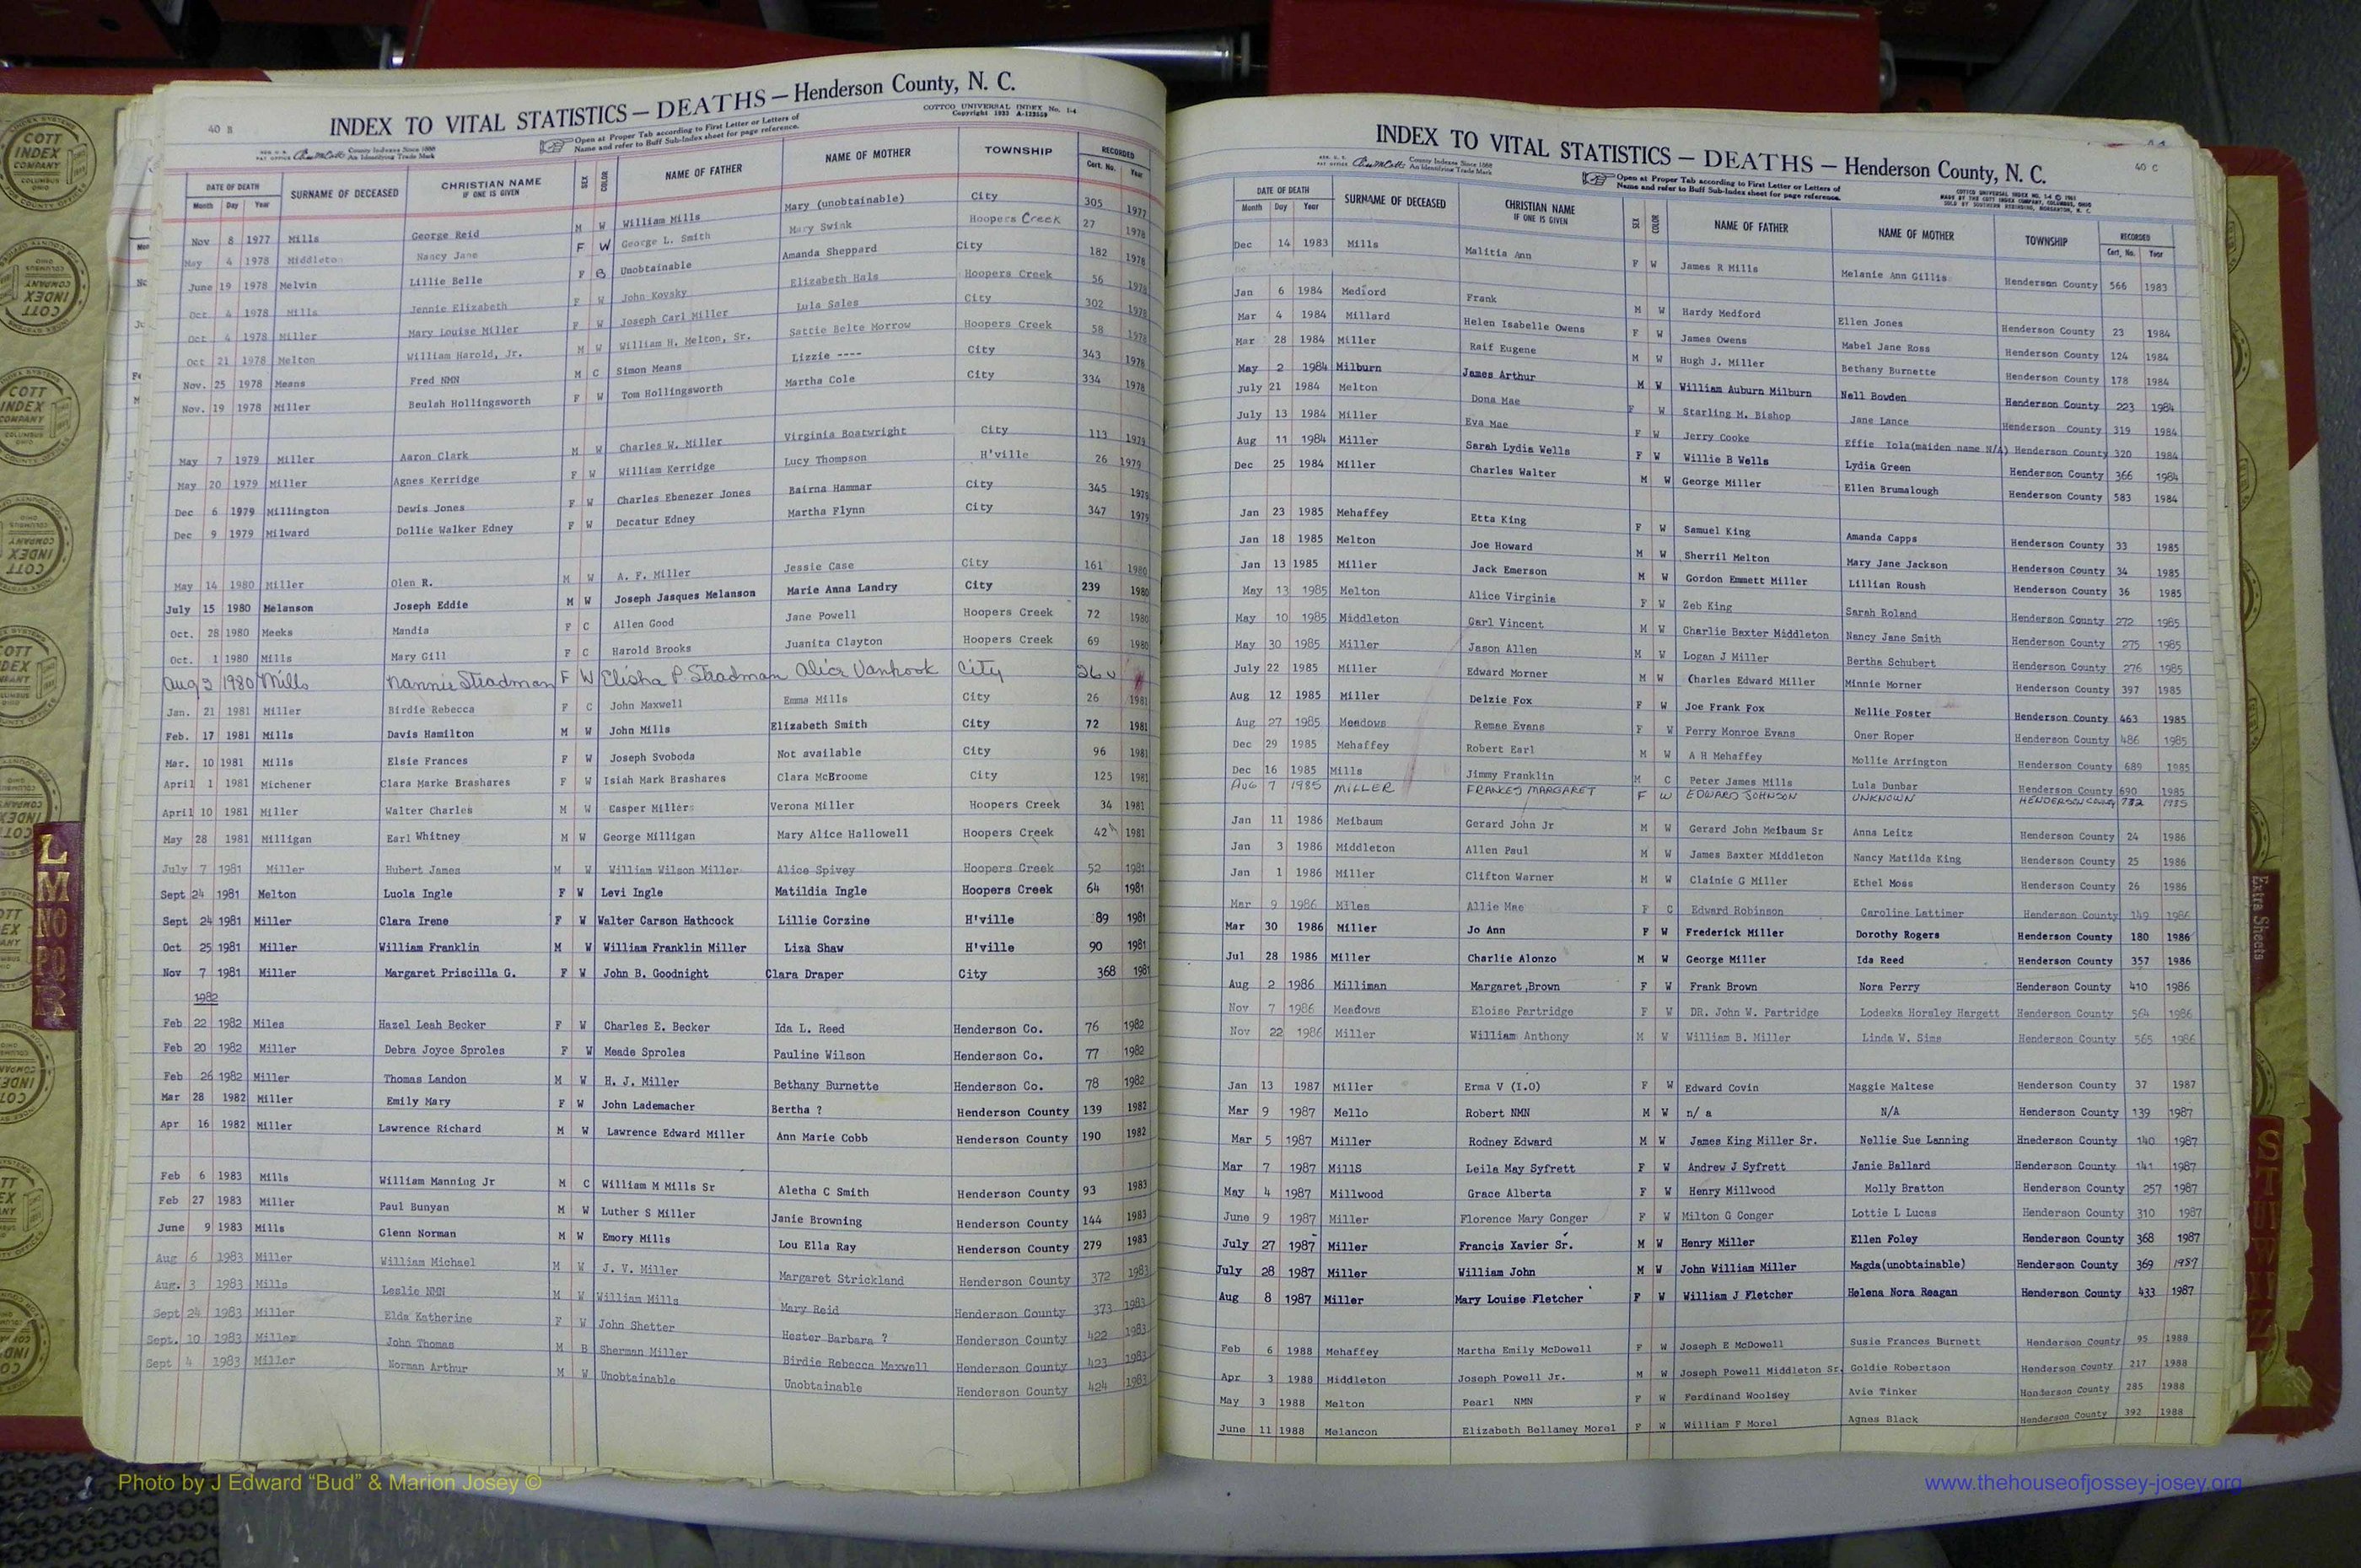 40 B
INDEX TO VITAL STATISTICS — DEATHS — Henderson County, N. C.
COTTCO UNIVERSAL INDEX No. 1-4
Copyright 1933 A-122559
County Indexes Since 1888
An Identifying Trade Mark
Open at Proper Tab according to First Letter or Letters of
Name and refer to Buff Sub-Index sheet for page reference.
DATE OF DEATH SURNAME OF DECEASED CHRISTIAN NAME IF ONE IS GIVEN SEX COLOR NAME OF FATHER NAME OF MOTHER TOWNSHIP RECORDED
Month Day Year Cert. No. Year
Nov 8 1977 Mills George Reid M W William Mills Mary (unobtainable) City 305 1977
May 4 1978 Middleton Nancy Jane F W George L. Smith Mary Swink Hoopers Creek 27 1978
June 19 1978 Melvin Lillie Belle F B Unobtainable Amanda Sheppard City 182 1978
Oct. 4 1978 Mills Jennie Elizabeth F W John Kovsky Elizabeth Hals Hoopers Creek 56 1978
Oct 4 1978 Miller Mary Louise Miller F W Joseph Carl Miller Lula Sales City 302 1978
Oct 21 1978 Melton William Harold, Jr. M W William H. Melton, Sr. Sattie Belte Morrow Hoopers Creek 58 1978
Nov. 25 1978 Means Fred NMN M C Simon Means Lizzie ---- City 343 1978
Nov. 19 1978 Miller Beulah Hollingsworth F W Tom Hollingsworth Martha Cole City 334 1978
May 7 1979 Miller Aaron Clark M W Charles W. Miller Virginia Boatwright City 113 1979
May 20 1979 Miller Agnes Kerridge F W William Kerridge Lucy Thompson H'ville 26 1979
Dec 6 1979 Millington Dewis Jones F W Charles Ebenezer Jones Bairna Hammar City 345 1979
Dec 9 1979 Milward Dollie Walker Edney F W Decatur Edney Martha Flynn City 347 1979
May 14 1980 Miller Olen R. M W A. F. Miller Jessie Case City 161 1980
July 15 1980 Melanson Joseph Eddie M W Joseph Jasques Melanson Marie Anna Landry City 239 1980
Oct. 28 1980 Meeks Mandia F C Allen Good Jane Powell Hoopers Creek 72 1980
Oct. 1 1980 Mills Mary Gill F C Harold Brooks Juanita Clayton Hoopers Creek 69 1980
Aug 3 1980 Mills Nannie Steadman F W Elisha P Steadman Alice Vanhook City
Jan. 21 1981 Miller Birdie Rebecca F C John Maxwell Emma Mills City 26 1981
Feb. 17 1981 Mills Davis Hamilton M W John Mills Elizabeth Smith City 72 1981
Mar. 10 1981 Mills Elsie Frances F W Joseph Svoboda Not available City 96 1981
April 1 1981 Michener Clara Marke Brashares F W Isiah Mark Brashares Clara McBroome City 125 1981
April 10 1981 Miller Walter Charles M W Casper Millers Verona Miller Hoopers Creek 34 1981
May 28 1981 Milligan Earl Whitney M W George Milligan Mary Alice Hallowell Hoopers Creek 42 1981
July 7 1981 Miller Hubert James M W William Wilson Miller Alice Spivey Hoopers Creek 52 1981
Sept 24 1981 Melton Luola Ingle F W Levi Ingle Matildia Ingle Hoopers Creek 64 1981
Sept 24 1981 Miller Clara Irene F W Walter Carson Hathcock Lillie Corzine H'ville 89 1981
Oct 25 1981 Miller William Franklin M W William Franklin Miller Liza Shaw H'ville 90 1981
Nov 7 1981 Miller Margaret Priscilla G. F W John B. Goodnight Clara Draper City 368 1981
1982
Feb 22 1982 Miles Hazel Leah Becker F W Charles E. Becker Ida L. Reed Henderson Co. 76 1982
Feb 20 1982 Miller Debra Joyce Sproles F W Meade Sproles Pauline Wilson Henderson Co. 77 1982
Feb 26 1982 Miller Thomas Landon M W H. J. Miller Bethany Burnette Henderson Co. 78 1982
Mar 28 1982 Miller Emily Mary F W John Lademacher Bertha ? Henderson County 139 1982
Apr 16 1982 Miller Lawrence Richard M W Lawrence Edward Miller Ann Marie Cobb Henderson County 190 1982
Feb 6 1983 Mills William Manning Jr M C William M Mills Sr Aletha C Smith Henderson County 93 1983
Feb 27 1983 Miller Paul Bunyan M W Luther S Miller Janie Browning Henderson County 144 1983
June 9 1983 Mills Glenn Norman M W Emory Mills Lou Ella Ray Henderson County 279 1983
Aug 6 1983 Miller William Michael M W J. V. Miller Margaret Strickland Henderson County 372 1983
Aug. 3 1983 Mills Leslie NMN M W William Mills Mary Reid Henderson County 373 1983
Sept 24 1983 Miller Elda Katherine F W John Shetter Hester Barbara ? Henderson County 422 1983
Sept. 10 1983 Miller John Thomas M B Sherman Miller Birdie Rebecca Maxwell Henderson County 423 1983
Sept 4 1983 Miller Norman Arthur M W Unobtainable Unobtainable Henderson County 424 1983
40 C
INDEX TO VITAL STATISTICS — DEATHS — Henderson County, N. C.
County Indexes Since 1888
An Identifying Trade Mark
Open at Proper Tab according to First Letter or Letters of
Name and refer to Buff Sub-Index sheet for page reference.
DATE OF DEATH SURNAME OF DECEASED CHRISTIAN NAME IF ONE IS GIVEN SEX COLOR NAME OF FATHER NAME OF MOTHER TOWNSHIP RECORDED
Month Day Year Cert. No. Year
Dec 14 1983 Mills Malitia Ann F W James R Mills Melanie Ann Gillis Henderson County 566 1983
Jan 6 1984 Medford Frank M W Hardy Medford Ellen Jones Henderson County 23 1984
Mar 4 1984 Millard Helen Isabelle Owens F W James Owens Mabel Jane Ross Henderson County 124 1984
Mar 28 1984 Miller Raif Eugene M W Hugh J. Miller Bethany Burnette Henderson County 178 1984
May 2 1984 Milburn James Arthur M W William Auburn Milburn Nell Bowden Henderson County 223 1984
July 21 1984 Melton Dona Mae F W Starling M. Bishop Jane Lance Henderson County 319 1984
July 13 1984 Miller Eva Mae F W Jerry Cooke Effie Iola(maiden name N/A) Henderson County 320 1984
Aug 11 1984 Miller Sarah Lydia Wells F W Willie B Wells Lydia Green Henderson County 366 1984
Dec 25 1984 Miller Charles Walter M W George Miller Ellen Brumalough Henderson County 583 1984
Jan 23 1985 Mehaffey Etta King F W Samuel King Amanda Capps Henderson County 33 1985
Jan 18 1985 Melton Joe Howard M W Sherril Melton Mary Jane Jackson Henderson County 34 1985
Jan 13 1985 Miller Jack Emerson M W Gordon Emmett Miller Lillian Roush Henderson County 36 1985
May 13 1985 Melton Alice Virginia F W Zeb King Sarah Roland Henderson County 272 1985
May 10 1985 Middleton Carl Vincent M W Charlie Baxter Middleton Nancy Jane Smith Henderson County 275 1985
May 30 1985 Miller Jason Allen M W Logan J Miller Bertha Schubert Henderson County 276 1985
July 22 1985 Miller Edward Morner M W Charles Edward Miller Minnie Morner Henderson County 397 1985
Aug 12 1985 Miller Delzie Fox F W Joe Frank Fox Nellie Foster Henderson County 463 1985
Aug 27 1985 Meadows Renae Evans F W Perry Monroe Evans Oner Roper Henderson County 486 1985
Dec 29 1985 Mehaffey Robert Earl M W A H Mehaffey Mollie Arrington Henderson County 689 1985
Dec 16 1985 Mills Jimmy Franklin M C Peter James Mills Lula Dunbar Henderson County 690 1985
AUG 7 1985 MILLER FRANCES MARGARET F W EDWARD JOHNSON UNKNOWN HENDERSON COUNTY 732 1985
Jan 11 1986 Meibaum Gerard John Jr M W Gerard John Meibaum Sr Anna Leitz Henderson County 24 1986
Jan 3 1986 Middleton Allen Paul M W James Baxter Middleton Nancy Matilda King Henderson County 25 1986
Jan 1 1986 Miller Clifton Warner M W Clainie G Miller Ethel Moss Henderson County 26 1986
Mar 9 1986 Miles Allie Mae F C Edward Robinson Caroline Lattimer Henderson County 149 1986
Mar 30 1986 Miller Jo Ann F W Frederick Miller Dorothy Rogers Henderson County 180 1986
Jul 28 1986 Miller Charlie Alonzo M W George Miller Ida Reed Henderson County 357 1986
Aug 2 1986 Milliman Margaret Brown F W Frank Brown Nora Perry Henderson County 410 1986
Nov 7 1986 Meadows Eloise Partridge F W DR. John W. Partridge Lodeska Horsley Hargett Henderson County 564 1986
Nov 22 1986 Miller William Anthony M W William B. Miller Linda W. Sims Henderson County 565 1986
Jan 13 1987 Miller Erma V (I.O) F W Edward Covin Maggie Maltese Henderson County 37 1987
Mar 9 1987 Mello Robert NMN M W n/a N/A Henderson County 139 1987
Mar 5 1987 Miller Rodney Edward M W James King Miller Sr. Nellie Sue Lanning Hnederson County 140 1987
Mar 7 1987 MillS Leila May Syfrett F W Andrew J Syfrett Janie Ballard Henderson County 141 1987
May 4 1987 Millwood Grace Alberta F W Henry Millwood Molly Bratton Henderson County 257 1987
June 9 1987 Miller Florence Mary Conger F W Milton G Conger Lottie L Lucas Henderson County 310 1987
July 27 1987 Miller Francis Xavier Sr. M W Henry Miller Ellen Foley Henderson County 368 1987
July 28 1987 Miller William John M W John William Miller Magda(unobtainable) Henderson County 369 1987
Aug 8 1987 Miller Mary Louise Fletcher F W William J Fletcher Helena Nora Reagan Henderson County 433 1987
Feb 6 1988 Mehaffey Martha Emily McDowell F W Joseph E McDowell Susie Frances Burnett Henderson County 95 1988
Apr 3 1988 Middleton Joseph Powell Jr. M W Joseph Powell Middleton Sr. Goldie Robertson Henderson County 217 1988
May 3 1988 Melton Pearl NMN F W Ferdinand Woolsey Avie Tinker Henderson County 285 1988
June 11 1988 Melancon Elizabeth Bellamey Morel F W William F Morel Agnes Black Henderson County 392 1988
COTT INDEX COMPANY COLUMBUS OHIO
L
M
NO
PQ
Extra Sheets
Photo by J Edward “Bud” & Marion Josey ©
www.thehouseofjossey-josey.org